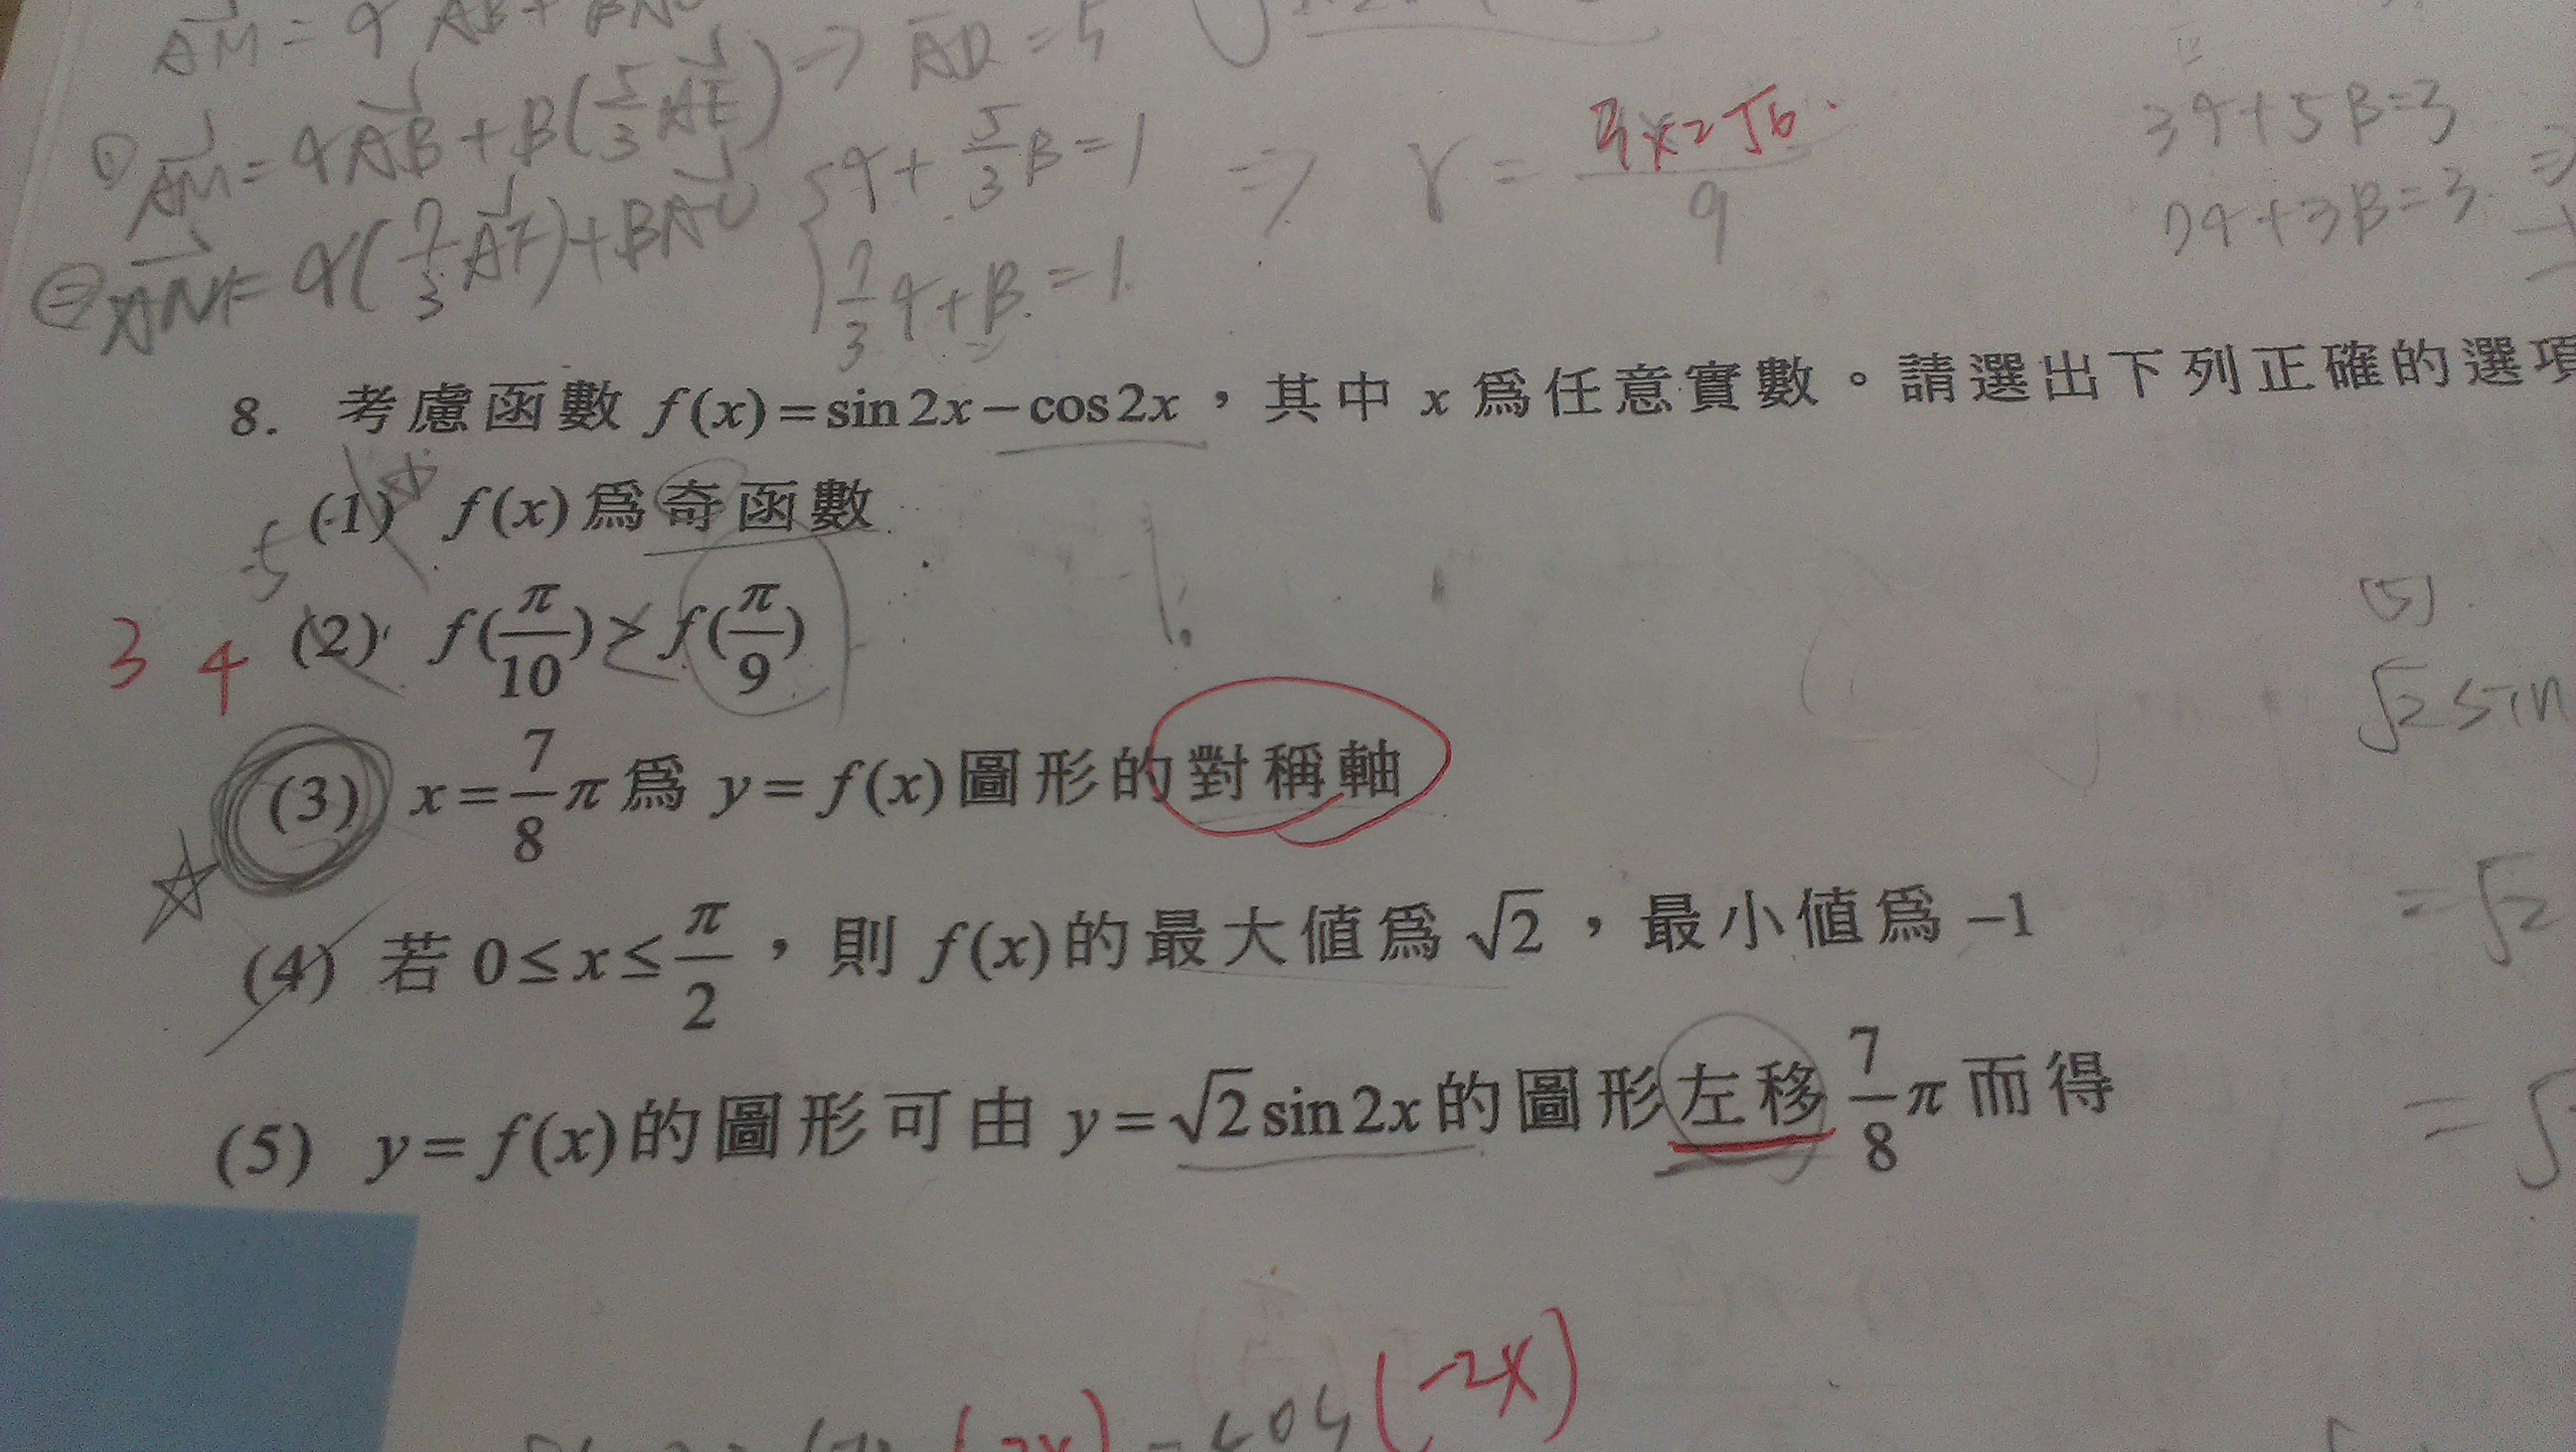 AM = α AB + β
① AM = αAB + β(5/3 AE) ⇒ AD = 5
② AM = α(7/3 AF) + βAC
5α + 5/3 β = 1
7/3 α + β = 1
⇒ γ = /9
3α + 5β = 3
7α + 3β = 3
8. 考慮函數 f(x) = sin2x − cos2x，其中 x 為任意實數。請選出下列正確的選項
(1) f(x) 為奇函數
(2) f(π/10) > f(π/9)
3 4
(3) x = 7/8 π 為 y = f(x) 圖形的對稱軸
(4) 若 0 ≤ x ≤ π/2，則 f(x) 的最大值為 √2，最小值為 −1
(5) y = f(x) 的圖形可由 y = √2 sin2x 的圖形左移 7/8 π 而得
(5)
√2 sin
= √2
= √
(2x) − cos(-2x)